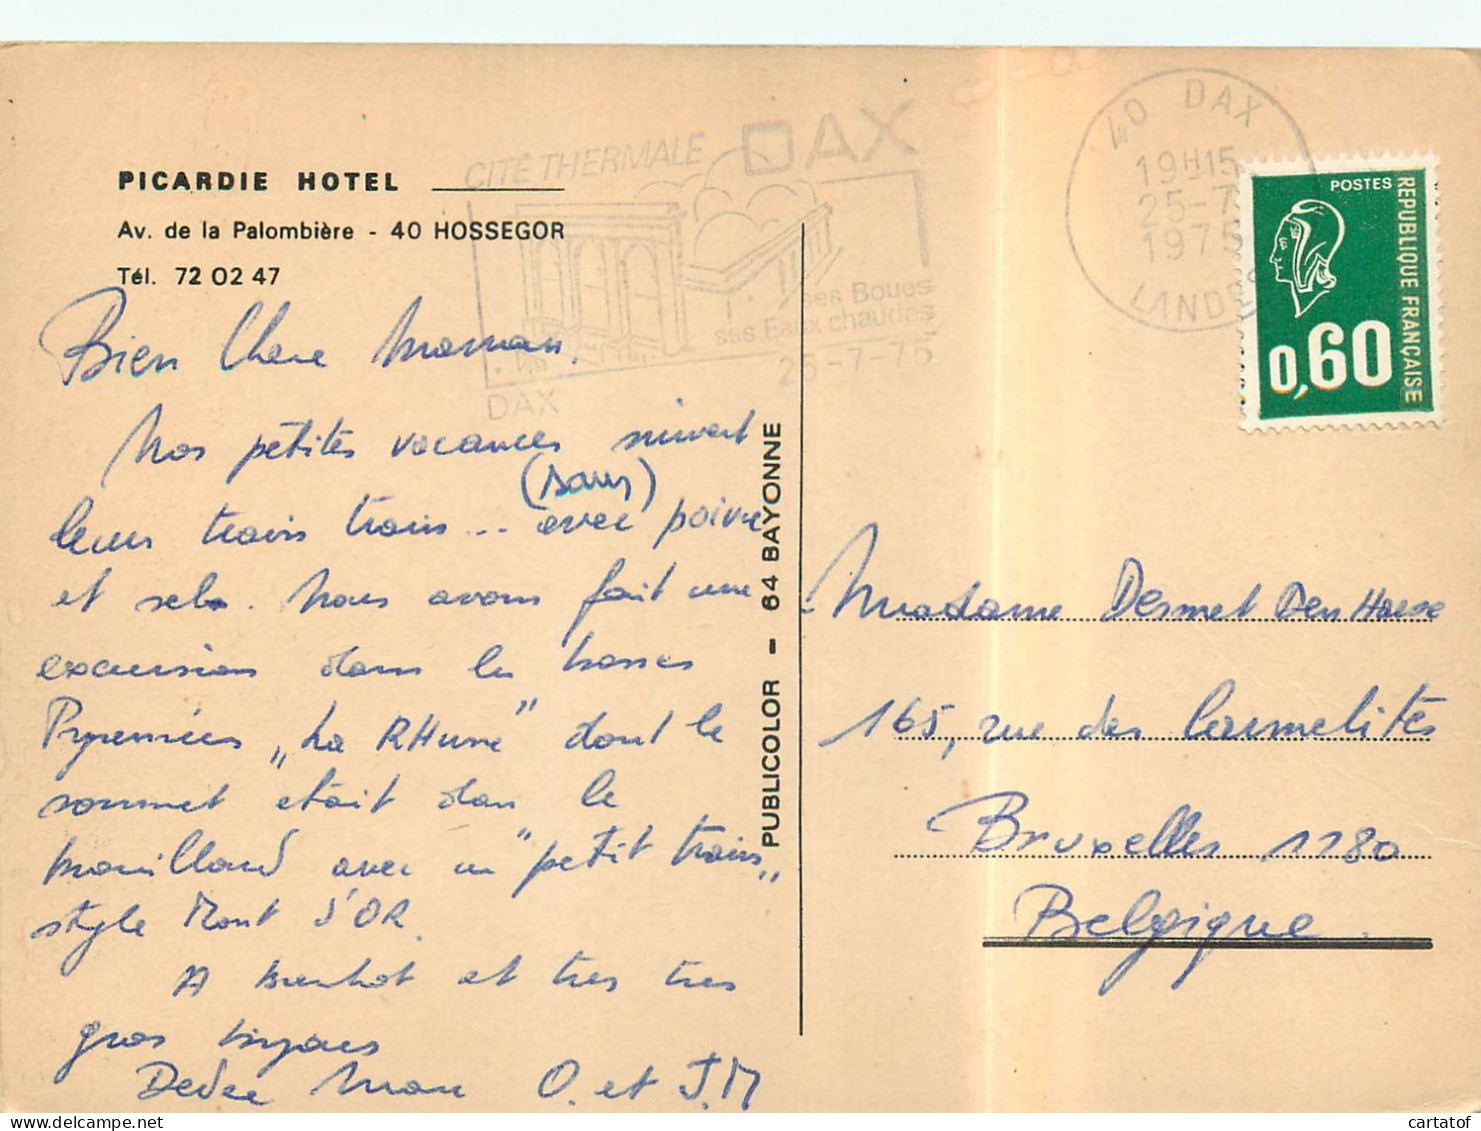 PICARDIE HOTEL
Av. de la Palombière - 40 HOSSEGOR
Tél. 72 02 47
CITÉ THERMALE DAX
ses Boues
ses Eaux chaudes
25-7-75
DAX
40 DAX
19H15
25-7
1975
LANDES
POSTES
REPUBLIQUE FRANÇAISE
0,60
Bien Chere Maman.
Nos petites vacances suivent
(sans)
leur train train... avec poivre
et sel. Nous avons fait une
excursion dans les basses
Pyrennées „La RHune" dont le
sommet etait dans le
brouillard avec un "petit train„
style Mont d'OR.
A bientot et tres tres
gros bisous
Dedee Marc O. et J.M
PUBLICOLOR - 64 BAYONNE
Madame Desmet Den Haese
165, rue des Carmelites
Bruxelles 1180
Belgique.
cartatof